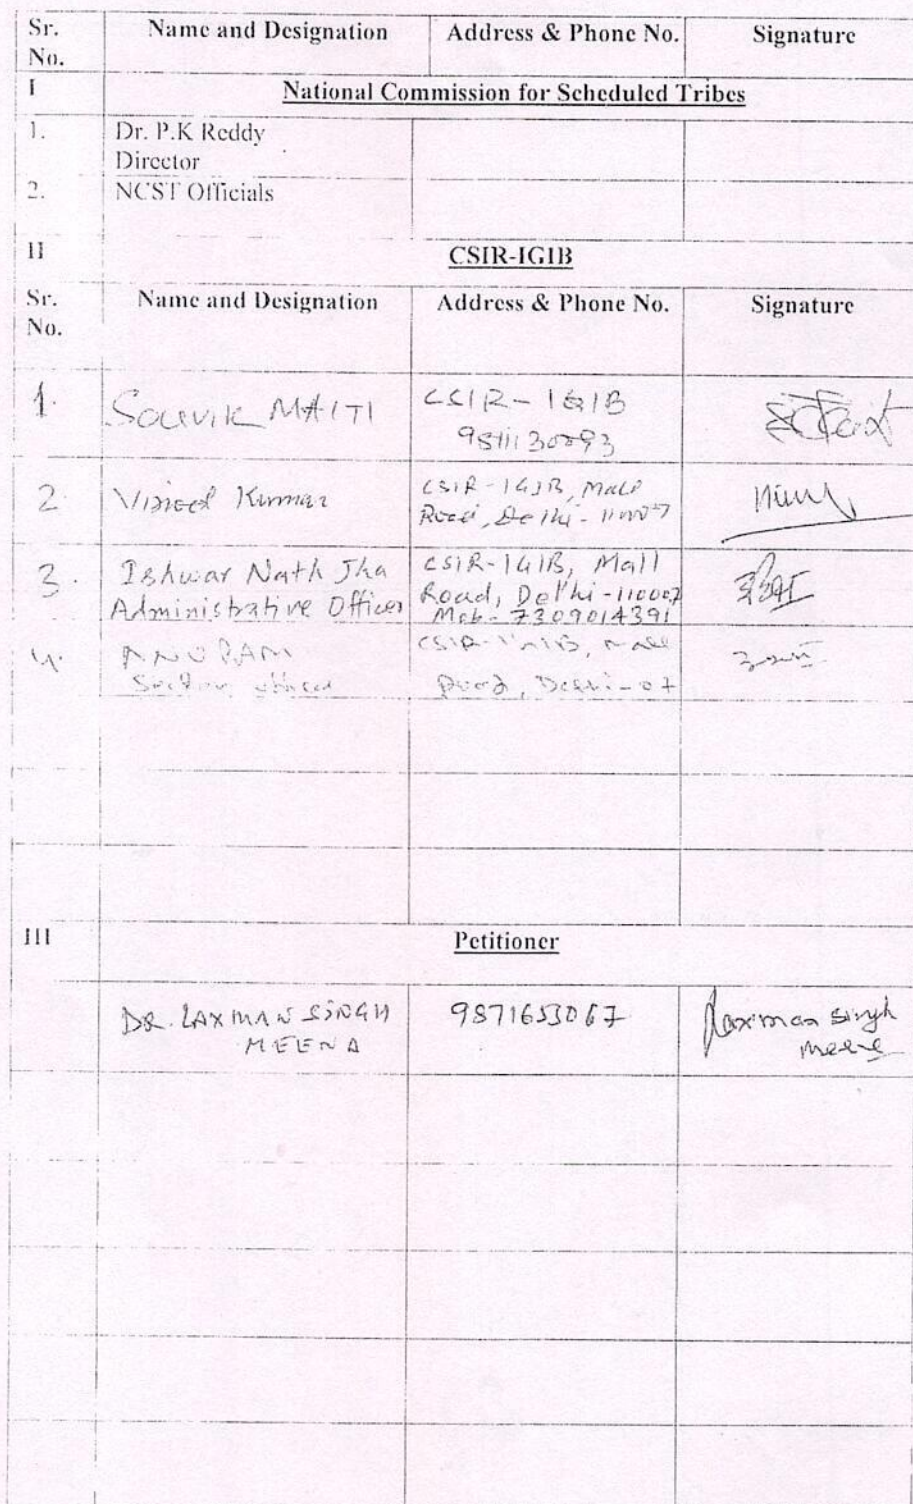 Sr. Name and Designation Address & Phone No. Signature
No.
I National Commission for Scheduled Tribes
1. Dr. P.K Reddy
Director
2. NCST Officials
II CSIR-IGIB
Sr. Name and Designation Address & Phone No. Signature
No.
1. Souvik MAITI CSIR-IGIB
9811130093
2. Vinod Kumar CSIR-IGIB, Mall
Road, Delhi-110007
3. Ishwar Nath Jha CSIR-IGIB, Mall
Administrative Officer Road, Delhi-110007
Mob-7309014391
4. ANUPAM CSIR-IGIB, Mall
Section officer Road, Delhi-07
III Petitioner
DR. LAXMAN SINGH 9871653067 Laxman Singh
MEENA Meena